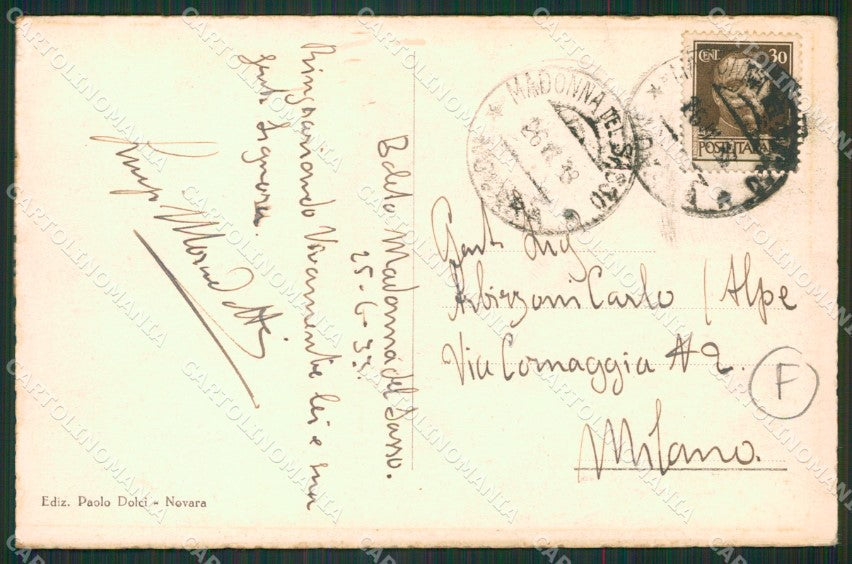 Boleto Madonna del Sasso.
25-6-37.
Ringraziando Vivamente lei e sua
gent Signora.
Gent Sig
Arbizzoni Carlo / Alpe
Via Cornaggia N 2.
Milano.
F
CENT 30
POSTE ITALIANE
MADONNA DEL SASSO
Ediz. Paolo Dolci - Novara
CARTOLINOMANIA